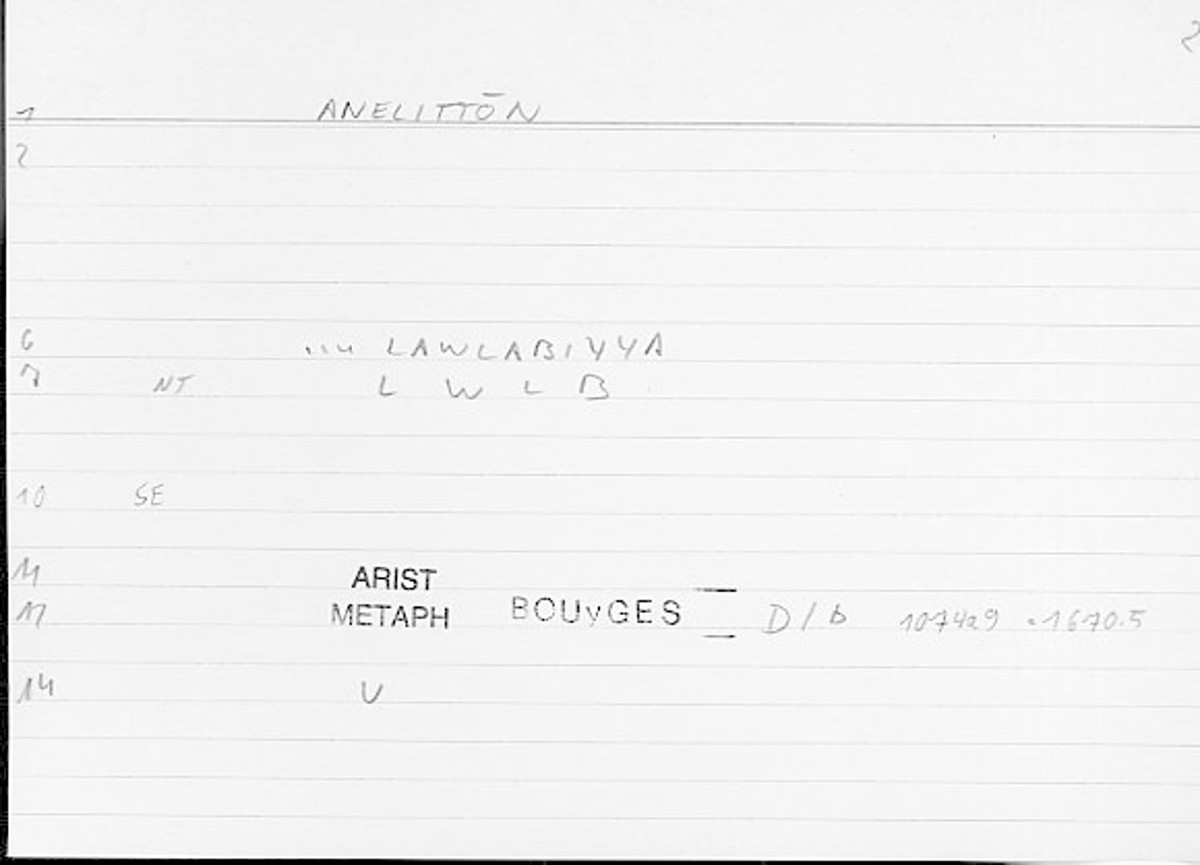 2
1 ANELITTŌN
2
6 ... LAWLABIYYA
7 NT L W L B
10 SE
11 ARIST
12 METAPH BOUyGES D/b 1074a9 .1670.5
14 U